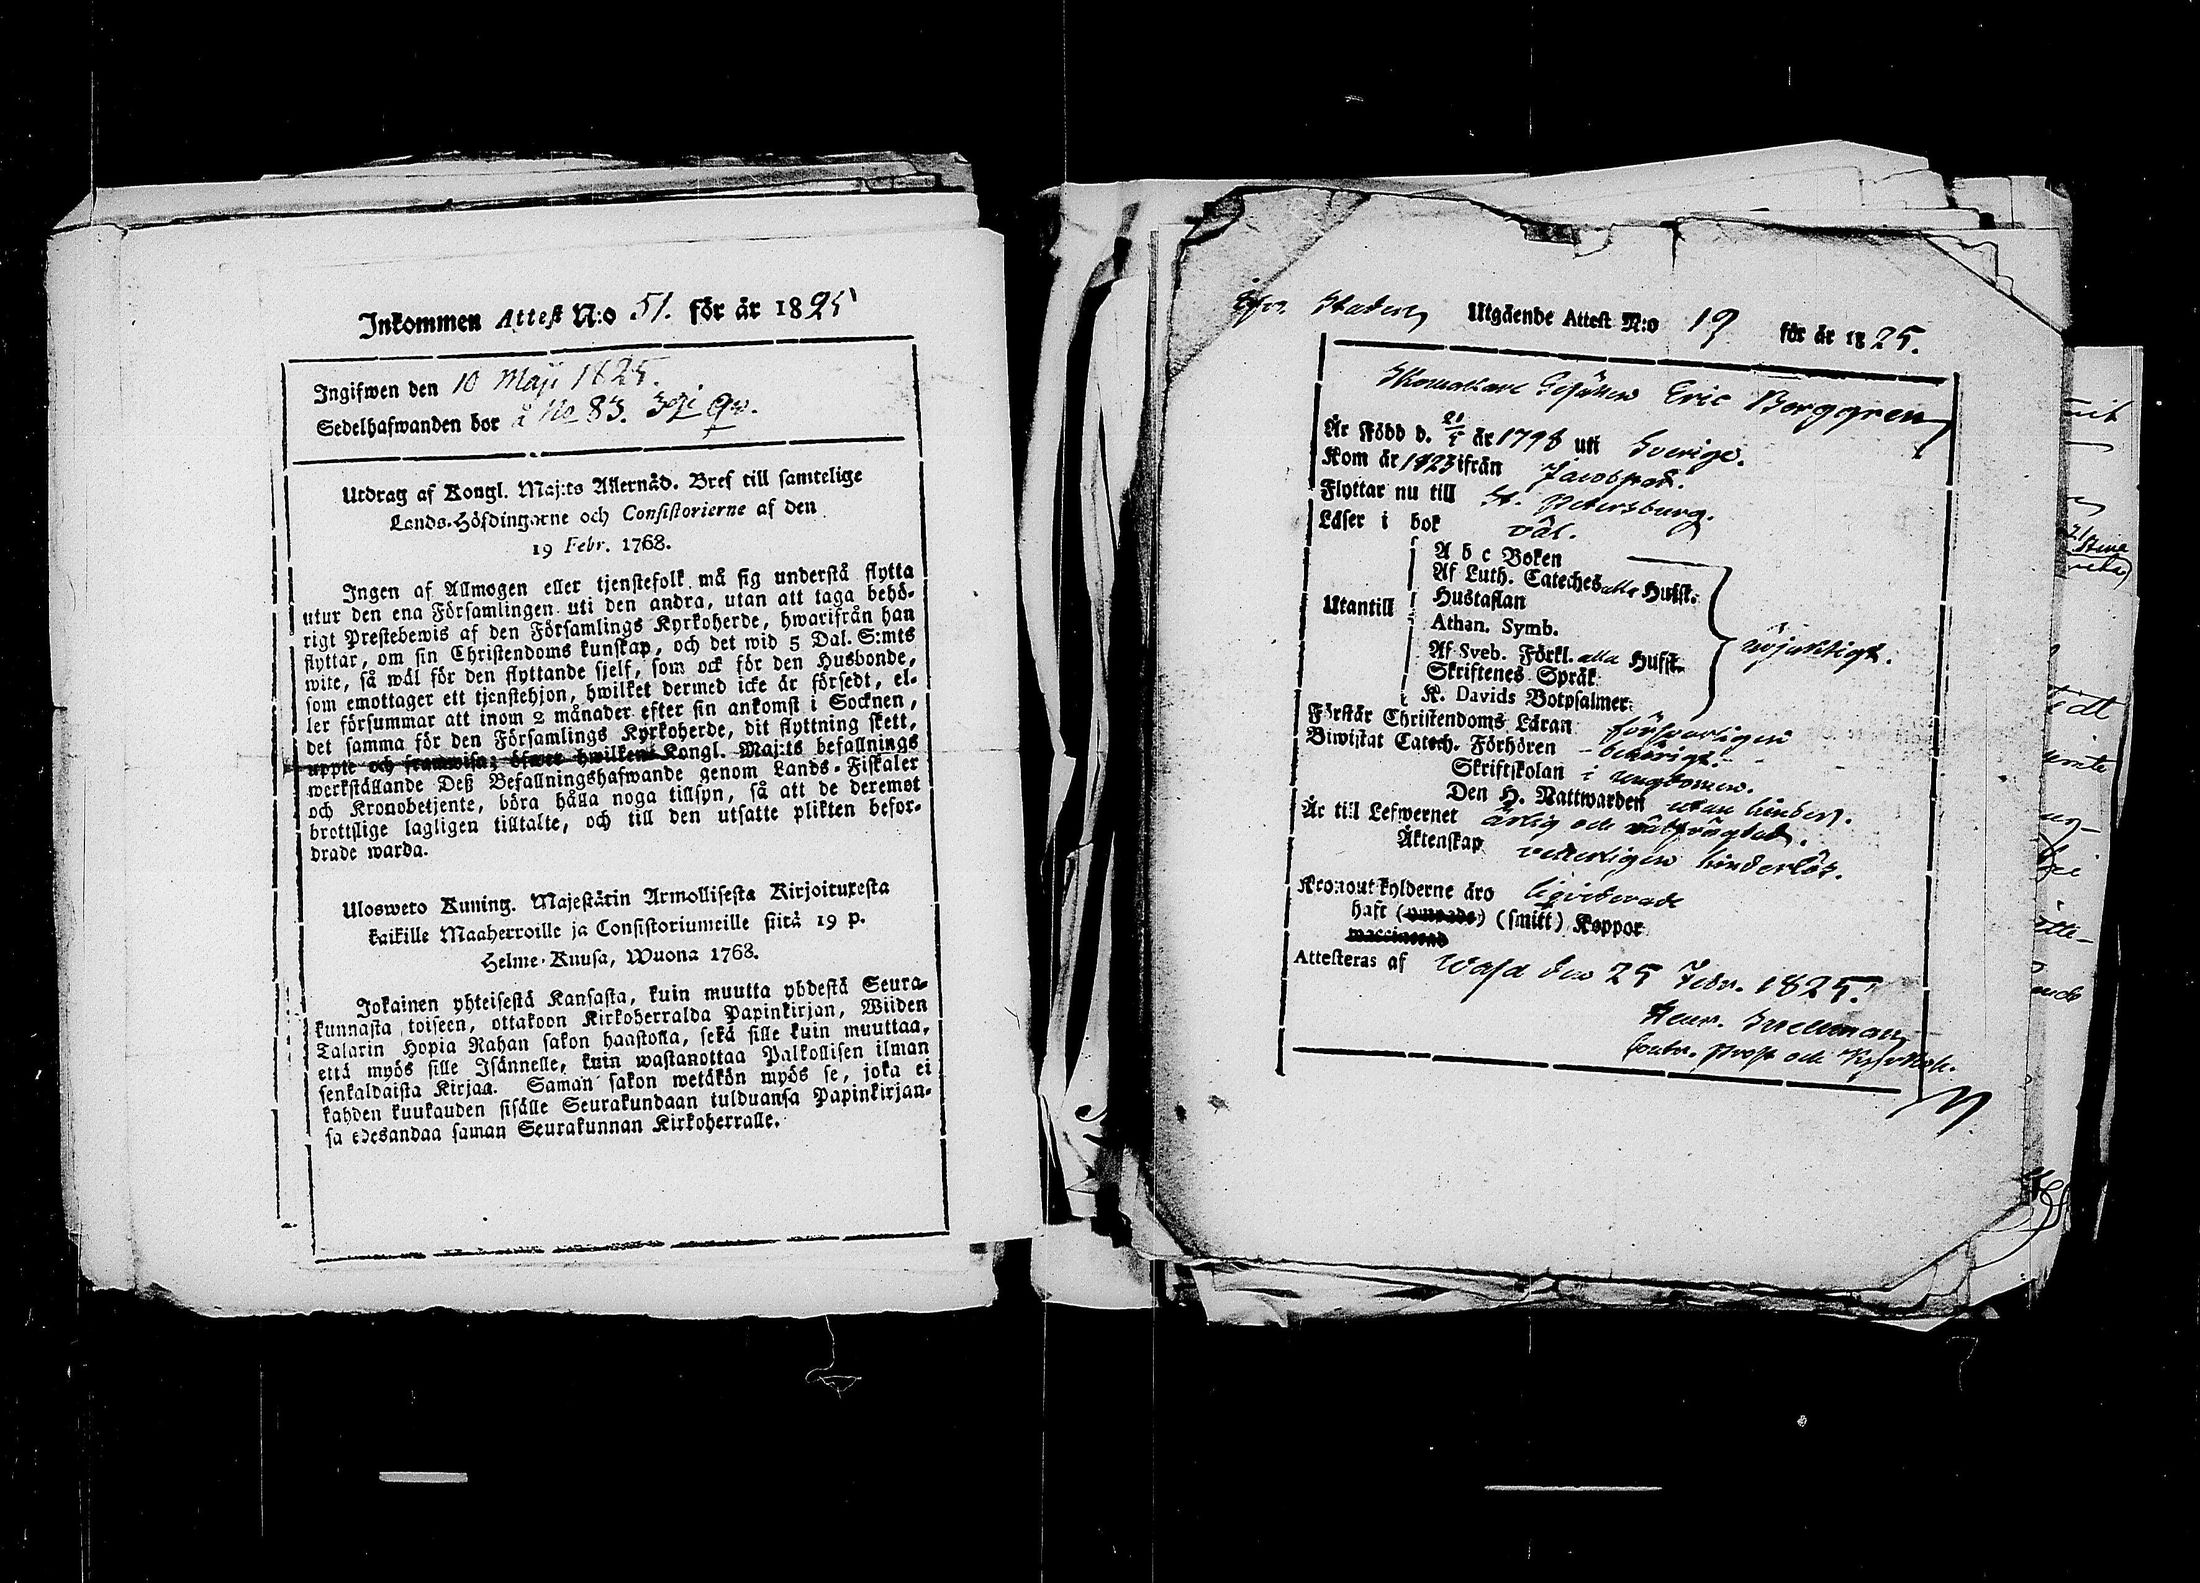 Inkommen Attest N:o 51. för år 1825
Ingifwen den 10 Maji 1825.
Sedelhafwanden bor å No 83. 3dje Qv.
Utdrag af Kongl. Maj:ts Allernåd. Bref till samtelige
Lands-Höfdingarne och Consistorierne af den
19 Febr. 1768.
Ingen af Allmogen eller tjenstefolk må sig understå flytta
utur den ena Församlingen uti den andra, utan att taga behö-
rigt Prestebewis af den Församlings Kyrkoherde, hwarifrån han
flyttar, om sin Christendoms kunskap, och det wid 5 Dal. S:mts
wite, så wäl för den flyttande sjelf, som ock för den Husbonde,
som emottager ett tjenstehjon, hwilket dermed icke är försedt, el-
ler försummar att inom 2 månader efter sin ankomst i Socknen,
det samma för den Församlings Kyrkoherde, dit flyttning skett,
uppte och framwisa; öfwer hwilken Kongl. Maj:ts befallnings
werkställande Deß Befallningshafwande genom Lands-Fiskaler
och Kronobetjente, böra hålla noga tillsyn, så att de deremot
brottslige lagligen tilltalte, och till den utsatte plikten befor-
drade warda.
Ulosweto Kuning. Majestätin Armollisesta Kirjoituxesta
kaikille Maaherroille ja Consistoriumeille siitä 19 p.
Helme-Kuusa, Wuona 1768.
Jokainen yhteisestä Kansasta, kuin muutta yhdestä Seura-
kunnasta toiseen, ottakoon Kirkoherralda Papinkirjan, Wiiden
Talarin Hopia Rahan sakon haastolla, sekä sille kuin muuttaa,
että myös sille Isännelle, kuin wastanottaa Palkollisen ilman
senkaldaista Kirjaa. Saman sakon wetäkön myös se, joka ei
kahden kuukauden sisälle Seurakundaan tulduansa Papinkirjan-
sa edesandaa saman Seurakunnan Kirkoherralle.
Utgående Attest N:o 19 för år 1825.
Skomakare Gesällen Eric Berggren
Är Född d. 21/5 år 1798 uti Sverige.
Kom år 1823 ifrån Jacobstad.
Flyttar nu till St. Petersburg.
Läser i bok väl.
A b c Boken
Af Luth. Cateches alla Hufst.
Utantill Hustaflan
Athan. Symb.
nöjaktigt.
Af Sveb. Förkl. alla Hufst.
Skriftenes Språk
K. Davids Botpsalmer
Förstår Christendoms Läran försvarligen
Biwistat Catech. Förhören behörigt.
Skriftskolan i ungdomen.
Den H. Nattwarden utan hinder.
Är till Lefwernet ärlig och välfrägdad.
Äktenskap veterligen hinderlös.
Kronoutskylderne äro liqviderade
haft (swåra) (smitt) Koppor
waccinerad
Attesteras af Wasa den 25 Febr. 1825.
Contr. Prost och Kyrkoh.